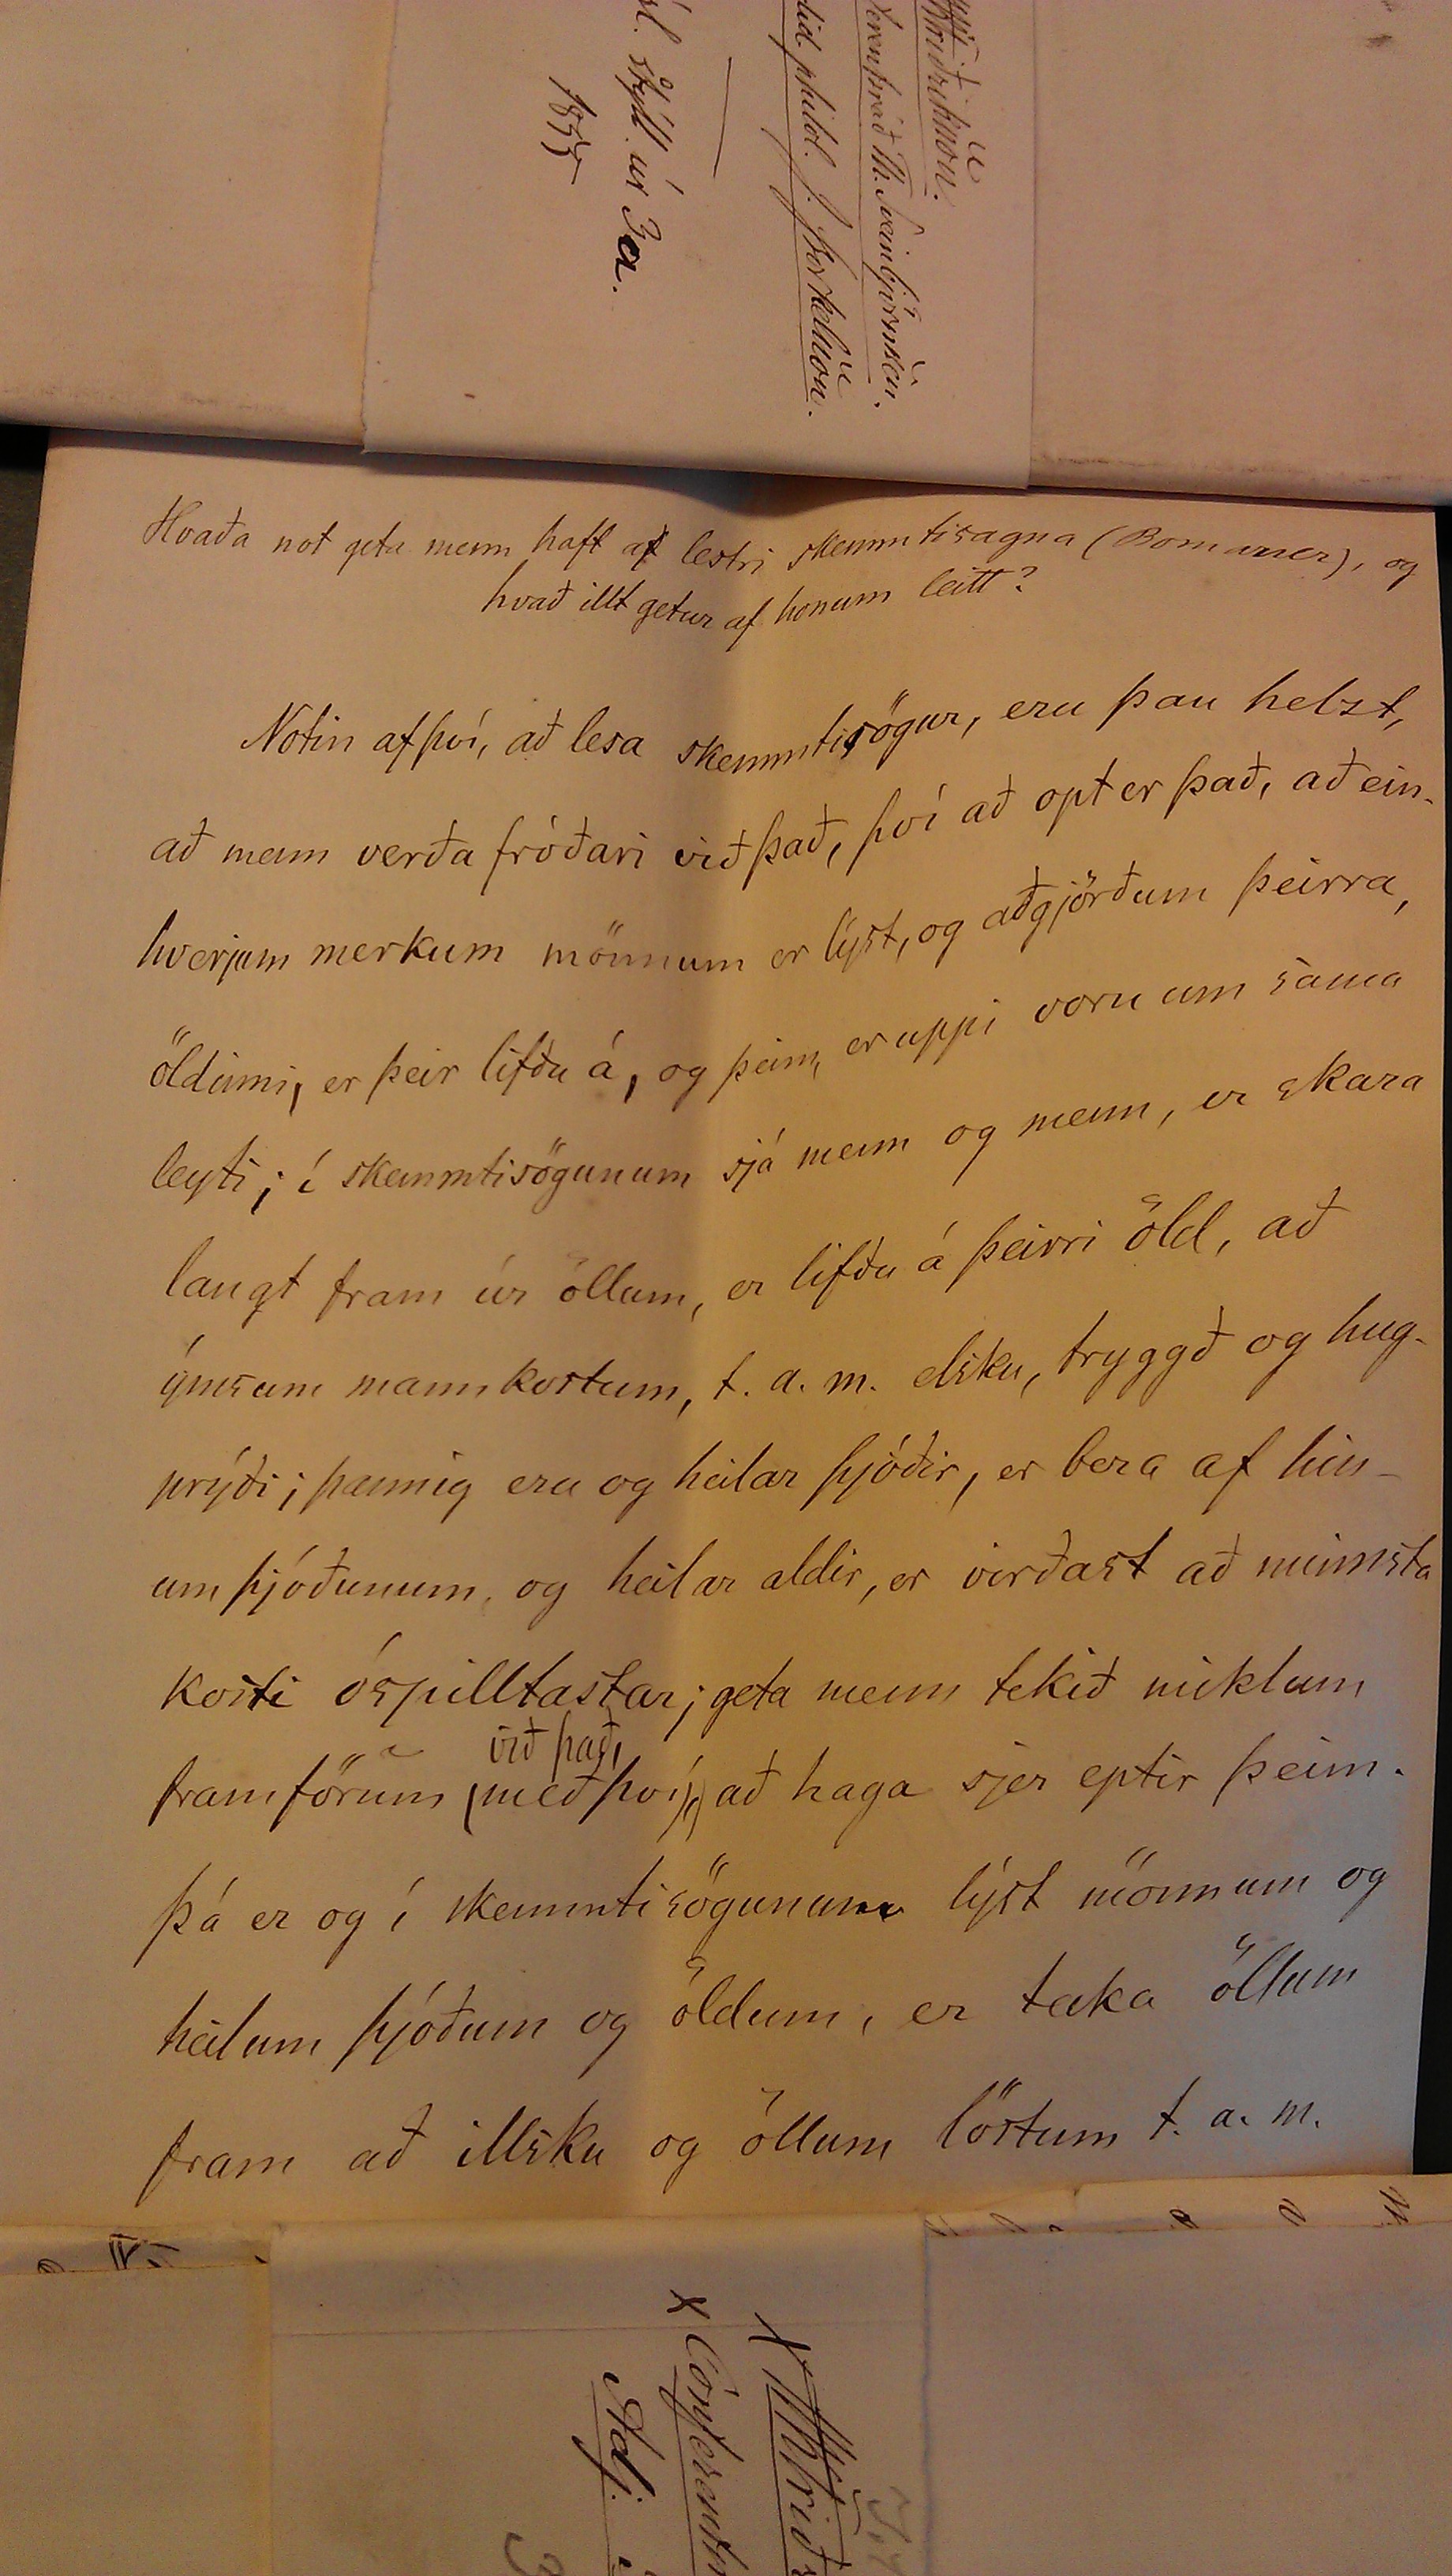 Friðriksson.
Th. Sveinbjörnsen.
philol. J. Þorkelsson.
ísl. stýll. úr 3a.
1855
Hvaða not geta menn haft af lestri skemmtisagna (Romaner), og
hvað illt getur af honum leitt?
Notin af því, að lesa skemmtisögur, eru þau helzt,
að menn verða fróðari við það, því að opt er það, að ein-
hverjum merkum mönnum er lýst, og aðgjörðum þeirra,
öldinni, er þeir lifðu á, og þeim, er uppi voru um sama
leyti; í skemmtisögunum sjá menn og menn, er skara
langt fram úr öllum, er lifðu á þeirri öld, að
ýmsum mannkostum, t. a. m. elsku, tryggð og hug-
prýði; þannig eru og heilar þjóðir, er bera af hin-
um þjóðunum, og heilar aldir, er virðast að minnsta
kosti óspilltastar; geta menn tekið miklum
við það,
framförum (með því), að haga sjer eptir þeim.
Þá er og í skemmtisögunum lýst mönnum og
heilum þjóðum og öldum, er taka öllum
fram að illsku og öllum löstum t. a. m.
x
x Conferentsr
Adj.